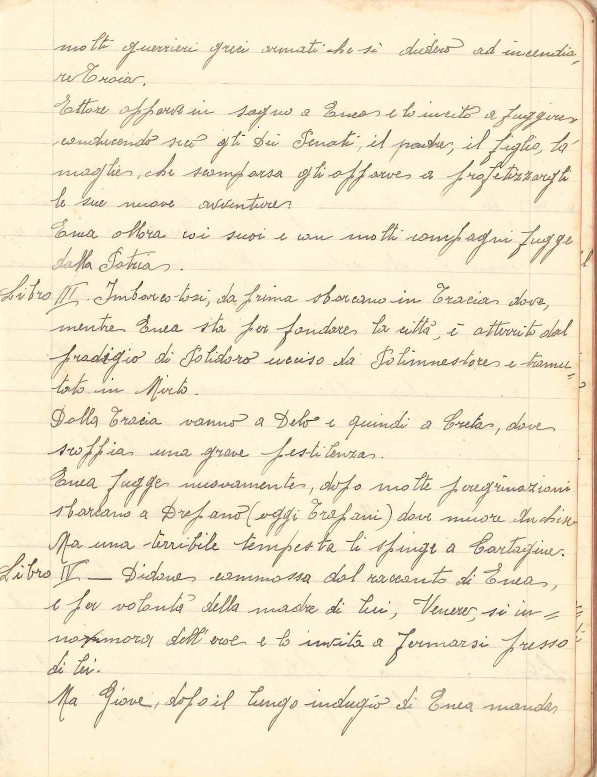 molti guerrieri greci armati che si diedero ad incendia-
re Troia.
Ettore apparve in sogno a Enea e lo invitò a fuggire
conducendo seco gli Dei Penati, il padre, il figlio, la
moglie, che scomparsa gli apparve a profetizzargli
le sue nuove avventure.
Enea allora coi suoi e con molti compagni fugge
dalla Patria.
Libro III. Imbarcatosi, da prima sbarcano in Tracia dove,
mentre Enea sta per fondare la città, è atterrito dal
prodigio di Polidoro ucciso da Polimnestore e tramu=
tato in Mirto.
Dalla Tracia vanno a Delo e quindi a Creta, dove
scoppia una grave pestilenza.
Enea fugge nuovamente, dopo molte peregrinazioni
sbarcano a Drepano (oggi Trapani) dove muore Anchise
Ma una terribile tempesta li spinge a Cartagine.
Libro IV — Didone commossa dal racconto di Enea,
e per volontà della madre di lui, Venere, si in=
namora dell'eroe e lo invita a fermarsi presso
di lei.
Ma Giove, dopo il lungo indugio di Enea manda